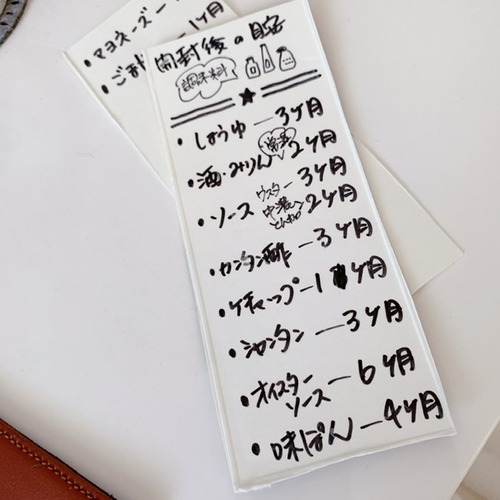 ・マヨネーズー1ヶ月
・ごまド
開封後の目安
調味料
・しょうゆ ー3ヶ月
・酒・みりん 常温 2ヶ月
・ソース ウスター ー3ヶ月
中濃 とんかつ 2ヶ月
・カンタン酢 ー3ヶ月
・ケチャップー1ヶ月
・シャンタン ー3ヶ月
・オイスター
ソース ー6ヶ月
・味ぽんー4ヶ月